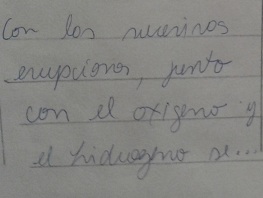 Con las
erupciones, junto
con el oxigeno y
el hidrogeno se...